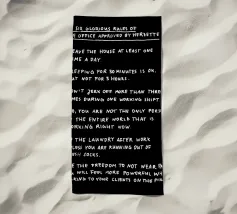 SIX GLORIOUS RULES OF
OFFICE APPROVED BY HERSETTE
EAVE THE HOUSE AT LEAST ONE
IME A DAY
LEEPING FOR 30 MINUTES IS OK,
UT NOT FOR 3 HOURS.
ON'T JERK OFF MORE THAN THREE
MES DURING ONE WORKING SHIFT
O, YOU ARE NOT THE ONLY PERS
THE ENTIRE WORLD THAT IS
ORKING RIGHT NOW
THE LAUNDRY AFTER WORK
LESS YOU ARE RUNNING OUT OF
SOCKS.
E THE FREEDOM TO NOT WEAR
WILL FEEL MORE POWERFUL
KING TO YOUR CLIENTS ON THE